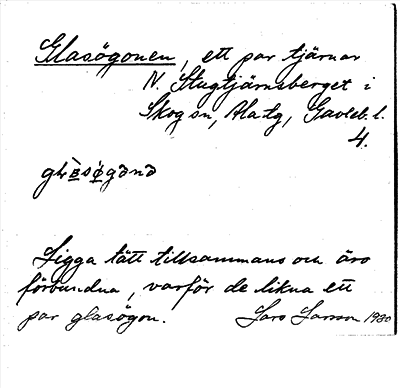 Glasögonen, ett par tjärnar
N. Stugtjärnsberget i
Skog sn, Ala tg, Gävleb. l.
4.
Ligga tätt tillsammans och äro
förbundna, varför de likna ett
par glasögon. Lars Larson 1930